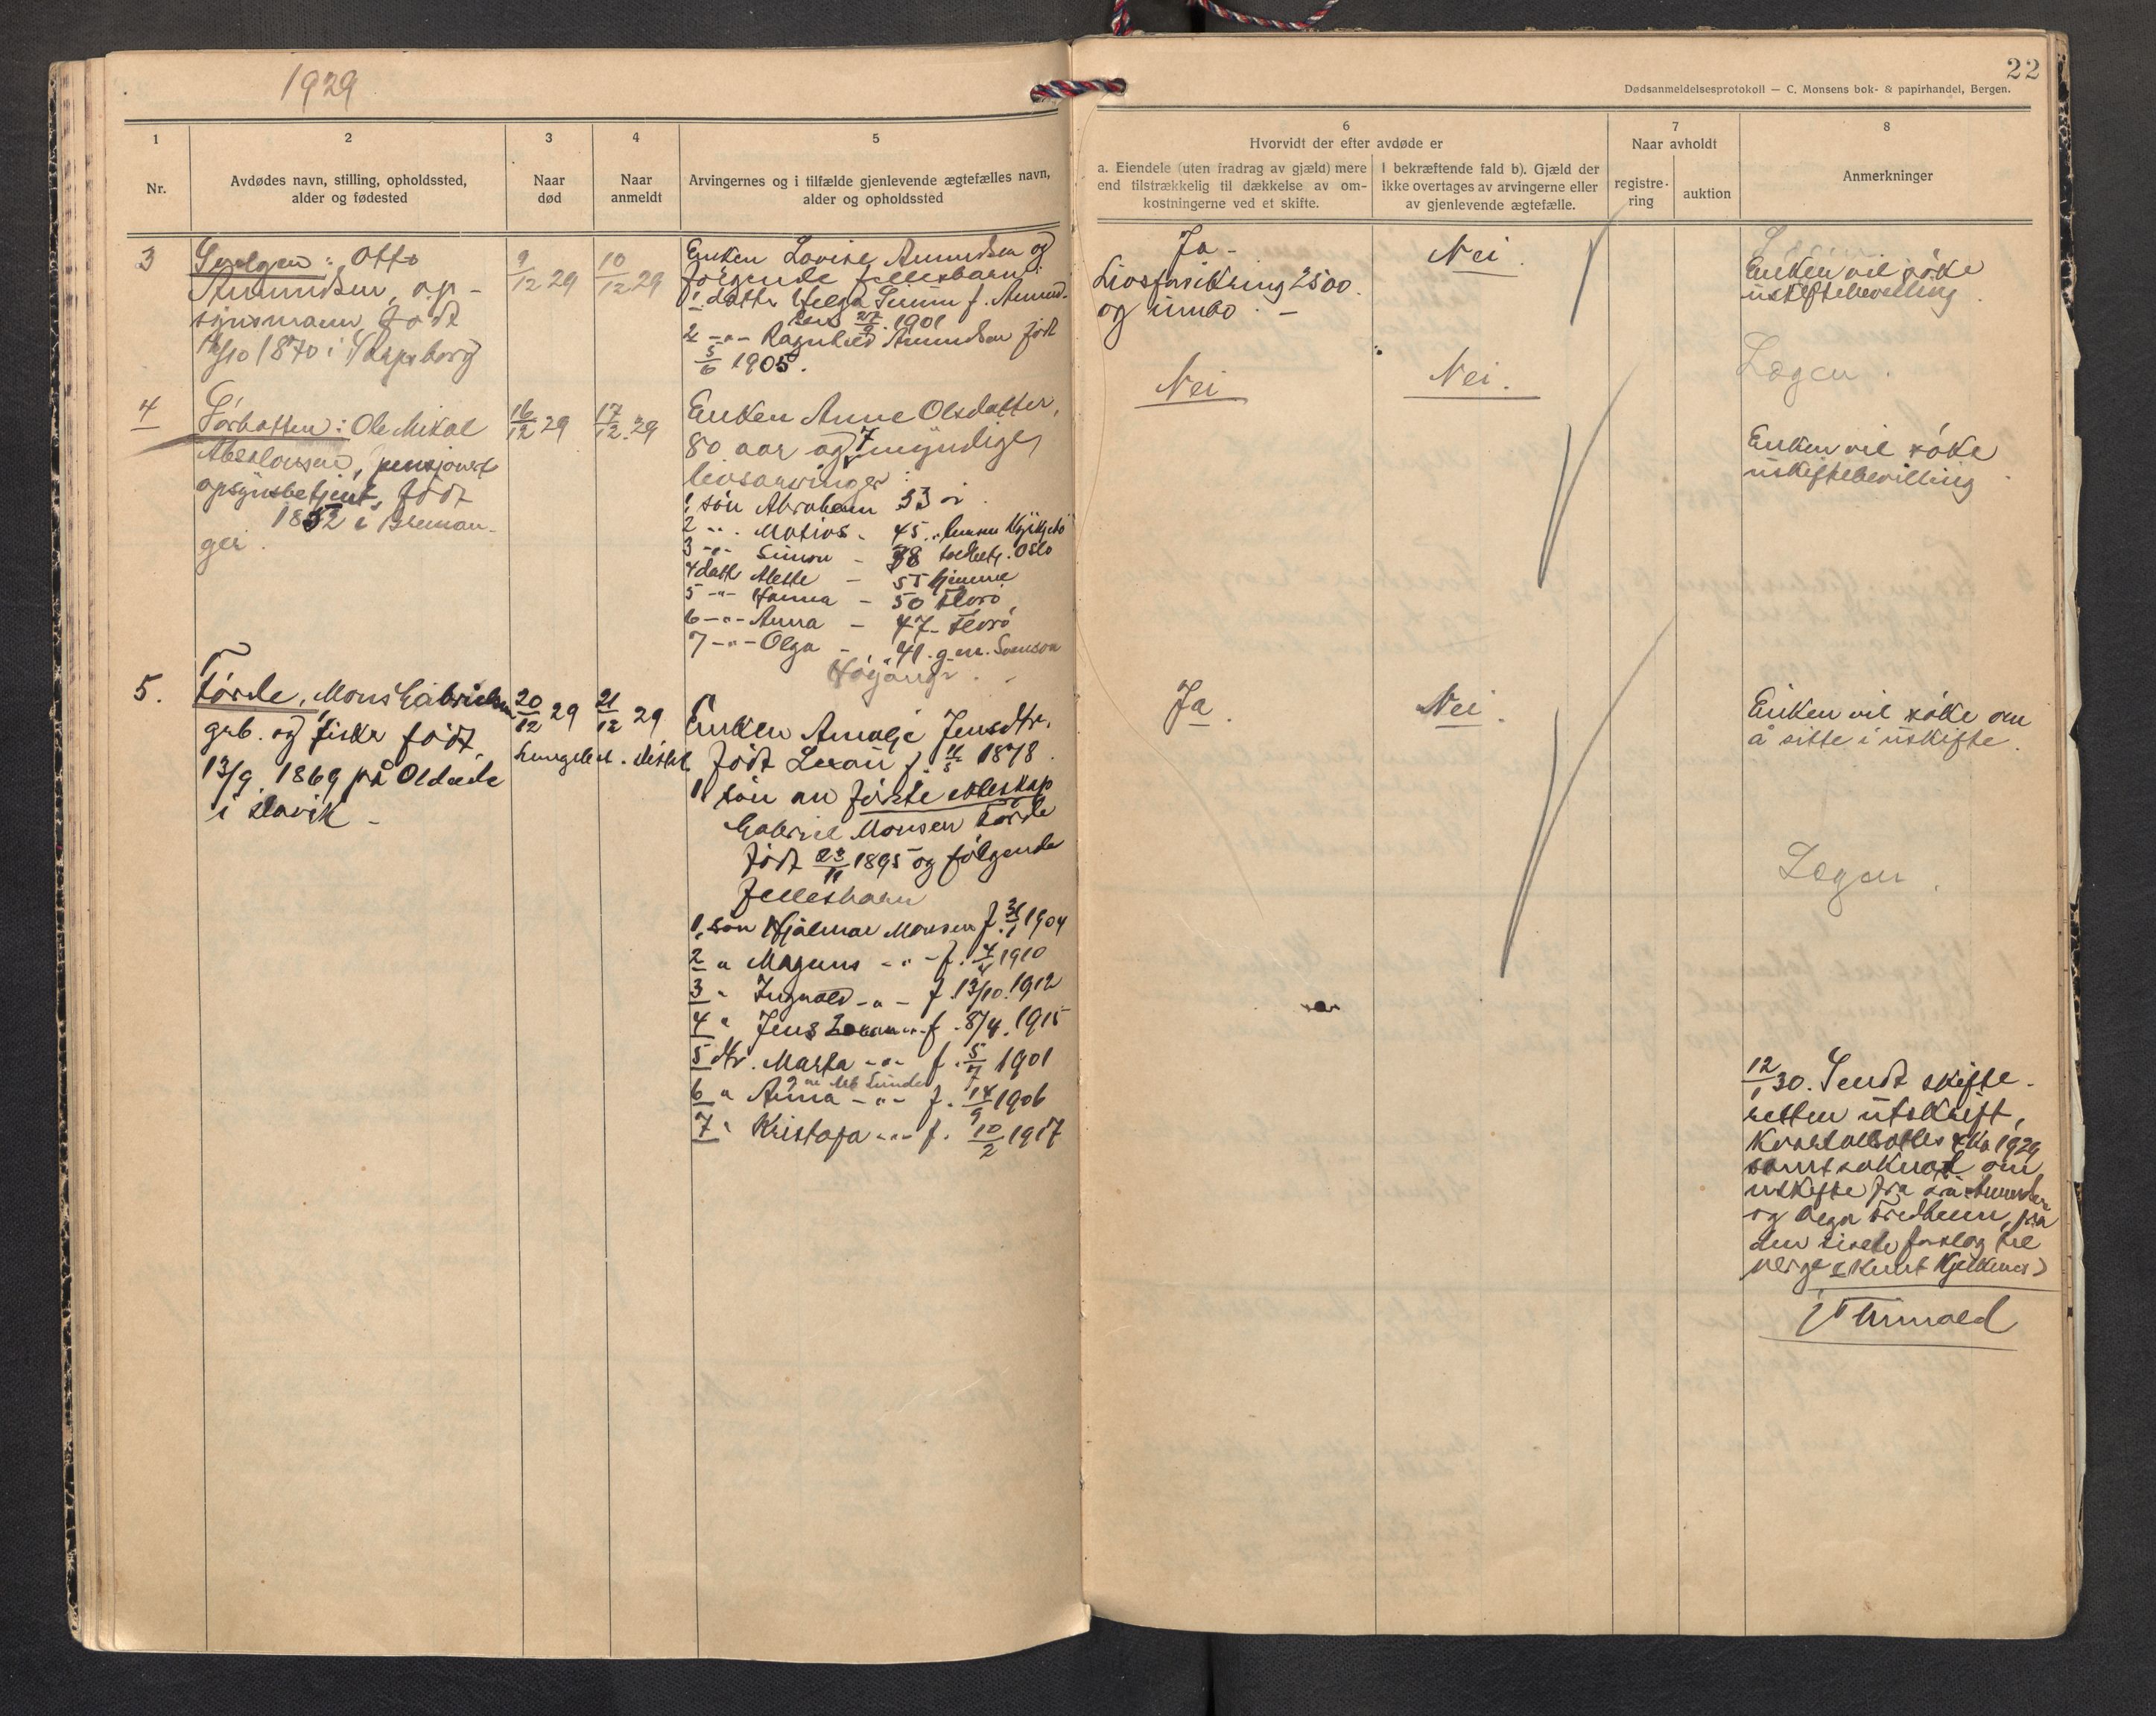 1929
22
Dødsanmeldelsesprotokoll — C. Monsens bok- & papirhandel, Bergen.
1
2
3
4
5
6
7
8
Nr.
Avdødes navn, stilling, opholdssted,
alder og fødested
Naar
død
Naar
anmeldt
Arvingernes og i tilfælde gjenlevende ægtefælles navn,
alder og opholdssted
Hvorvidt der efter avdøde er
a. Eiendele (uten fradrag av gjæld) mere
end tilstrækkelig til dækkelse av om-
kostningerne ved et skifte.
I bekræftende fald b). Gjæld der
ikke overtages av arvingerne eller
av gjenlevende ægtefælle.
Naar avholdt
registre-
ring
auktion
Anmerkninger
3
Svelgen: Otto
Amundsen, op-
synsmann, født
/10 1870 i Sarpsborg
9/12 29
10/12 29
Enken Lovise Amundsen og
følgende fellesbarn:
1. datter Helga f. Amund-
sen 27/9 1901
2 -"- Ragnhild Amundsen født
5/6 1905.
Ja -
Livsforsikring 2500.
og innbo. -
Nei.
Enken vil søke
uskiftebevilling.
4
Ole Mikal
Absalonsen, pensjonert
opsynsbetjent, født
1852 i Breman-
ger.
16/12 29
17/12 29
Enken Anne Olsdatter,
80 aar og 7 myndige
livsarvinger:
1 søn Abraham 53 år.
2 -"- Matias - 45
3 -"- Simon - 38 Oslo
4 datt Alette - 55 hjemme
5 -"- Hanna - 50 Florø
6 -"- Anna - 47 - Florø
7 -"- Olga - 41. g.m. Svenson
Høyanger.
Nei
Nei.
Lægen.
Enken vil søke
uskiftebevilling.
5.
Førde, Mons Gabrielsen
grb. og fisker født
13/9 1869 på Oldeide
i Davik -
20/12 29
21/12 29
Enken Amalje Jensdtr.
født f. 1878.
1 søn av første ekteskap
Gabriel Monsen Førde
født 23/11 1895 og følgende
fellesbarn
1. søn Hjalmar Monsen f. 31/1 1904
2 " Magnus -"- f. 4/4 1910
3 " Ingvald -"- f. 13/10. 1912
4 " Jens Johan -"- f. 8/4. 1915
5 dtr. Marta -"- f. 5/7 1901
6 " Anna -"- f. 14/9 1906
7 " Kristofa -"- f. 10/2 1917
Ja.
Nei.
Enken vil søke om
å sitte i uskifte.
Lægen.
12/1 30. Sendt skifte-
retten utskrift,
1929
samt søknad om
uskifte fra fru Amundsen
og Olga Tredheim, fra
den siste forslag til
verge